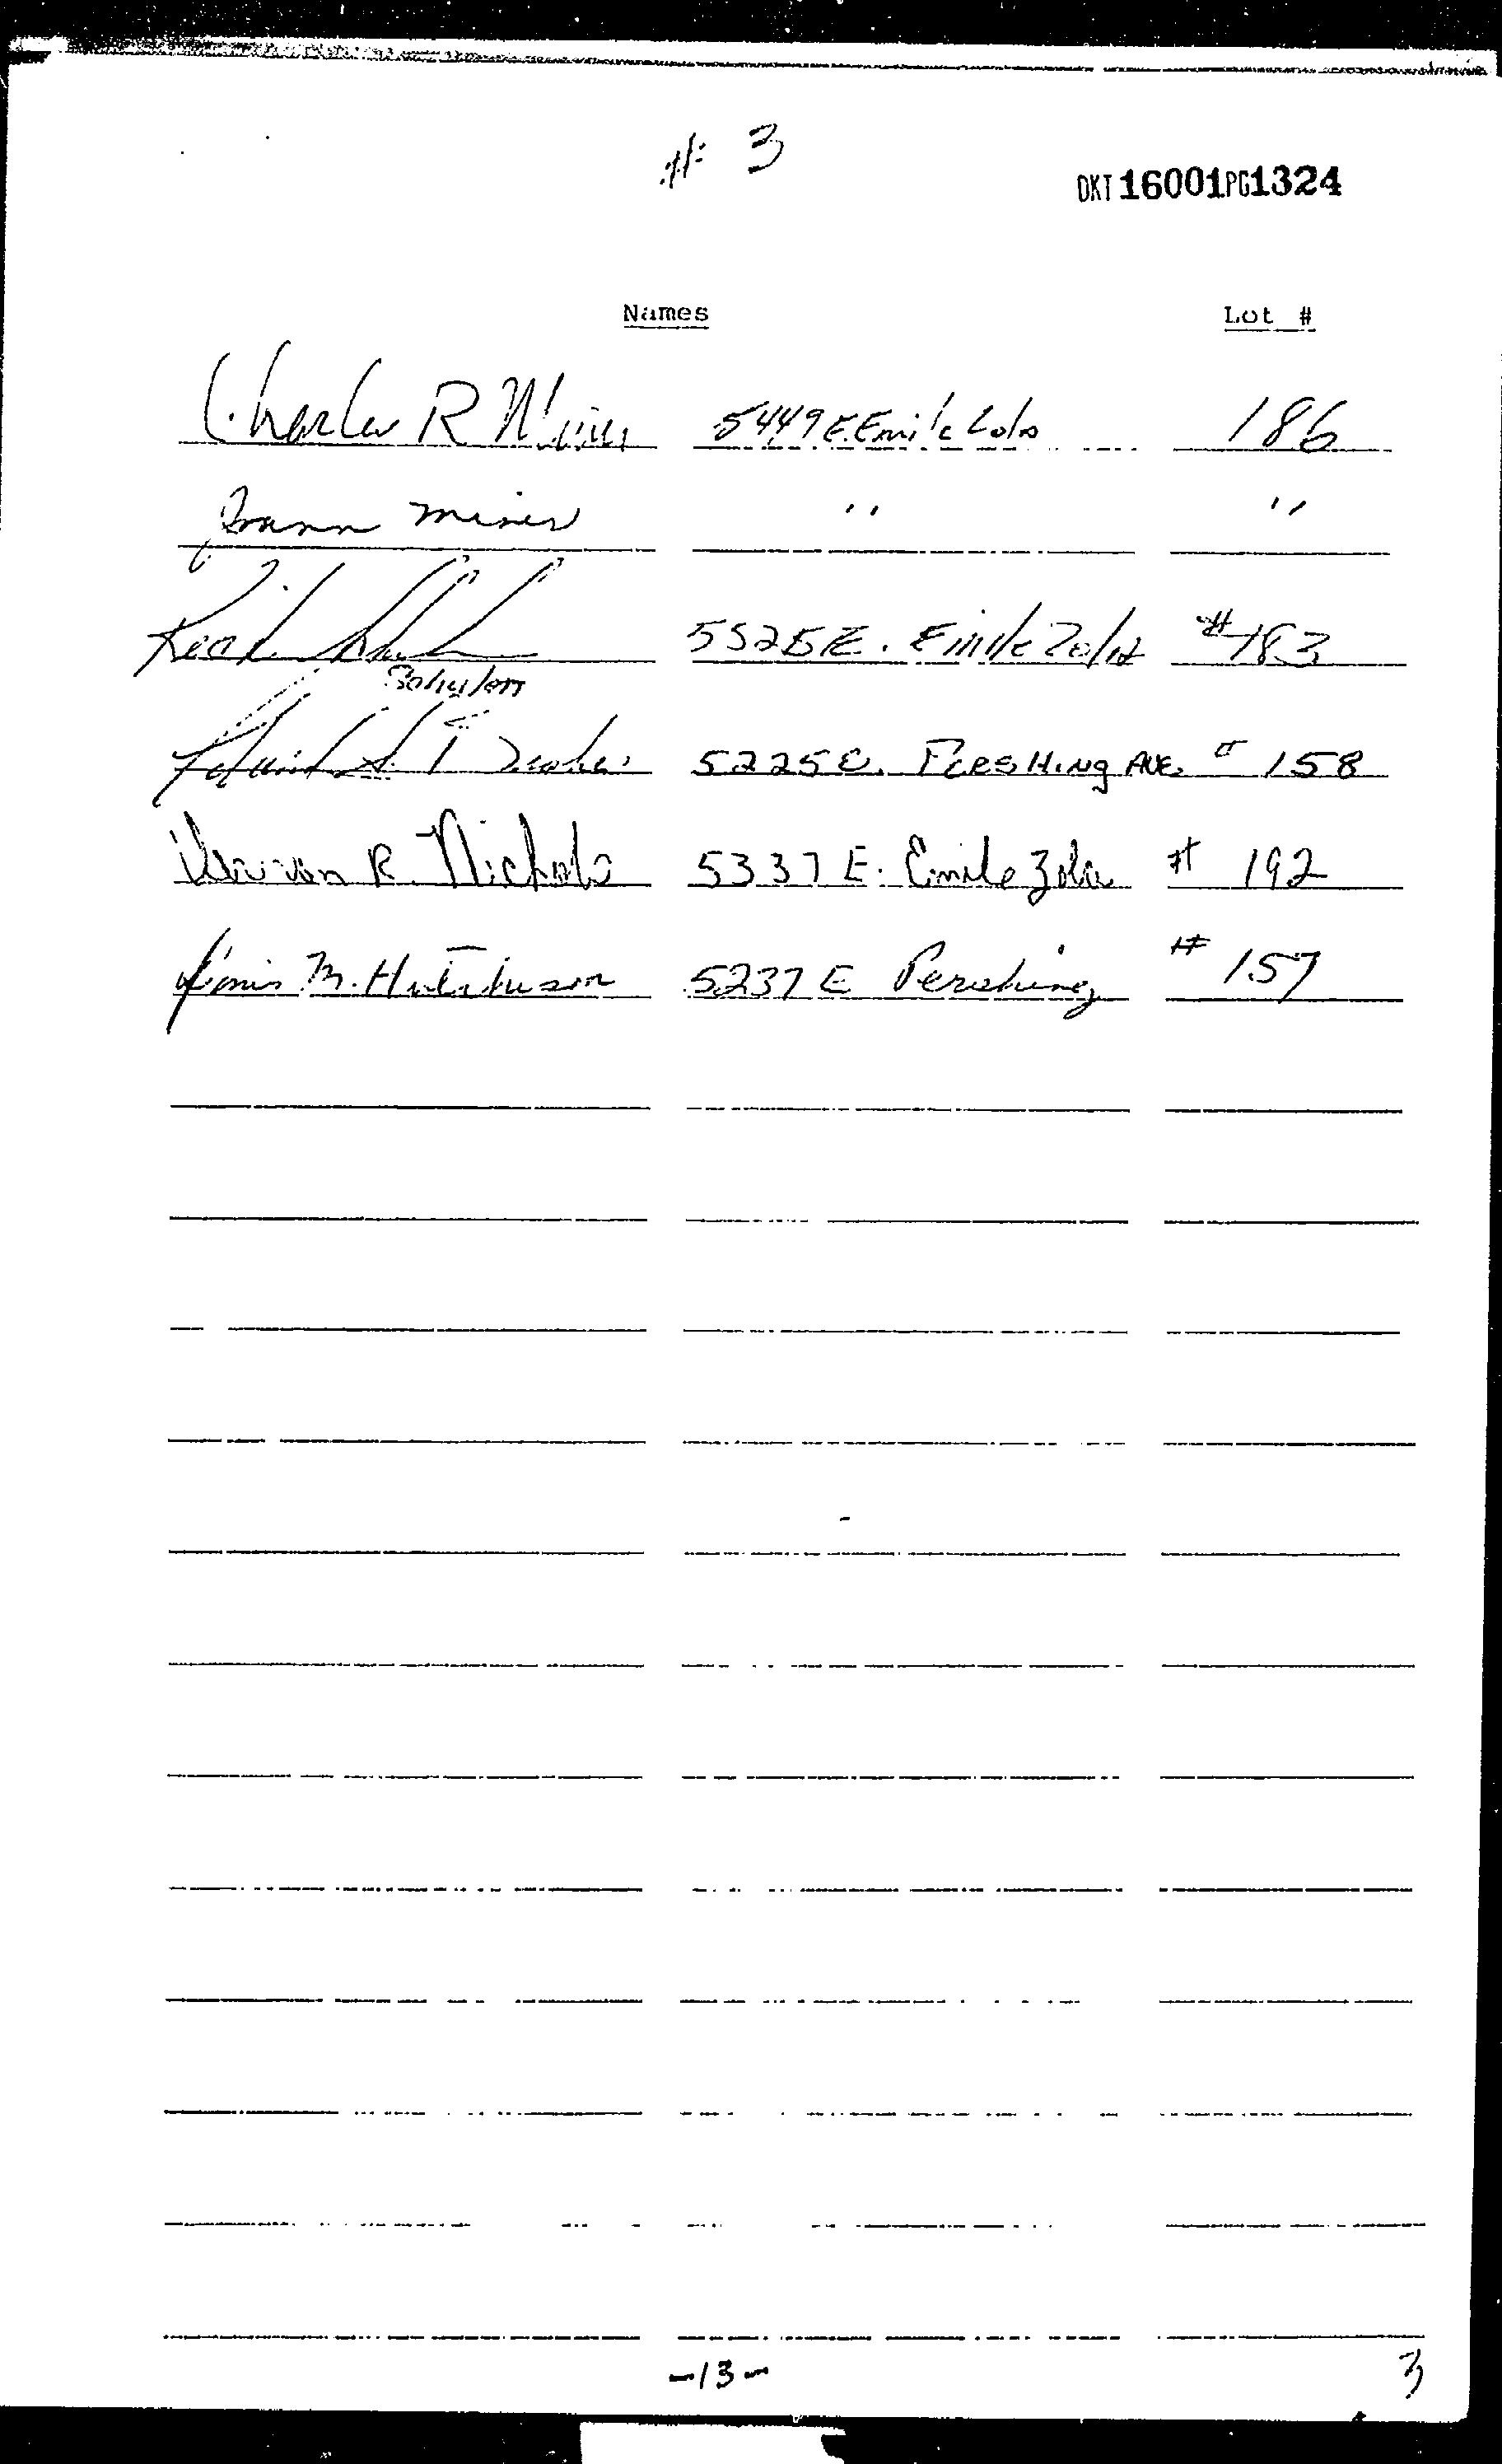 # 3
DKT 16001 PG 1324
Names Lot #
Charles R Miner 5449 E. Emile Zola 186
Joann Miner " "
5525 E. Emile Zola #183
5225 E. Pershing Ave. # 158
R. Nichols 5337 E. Emile Zola # 192
M. Hutchison 5237 E Pershing # 157
-13-
3